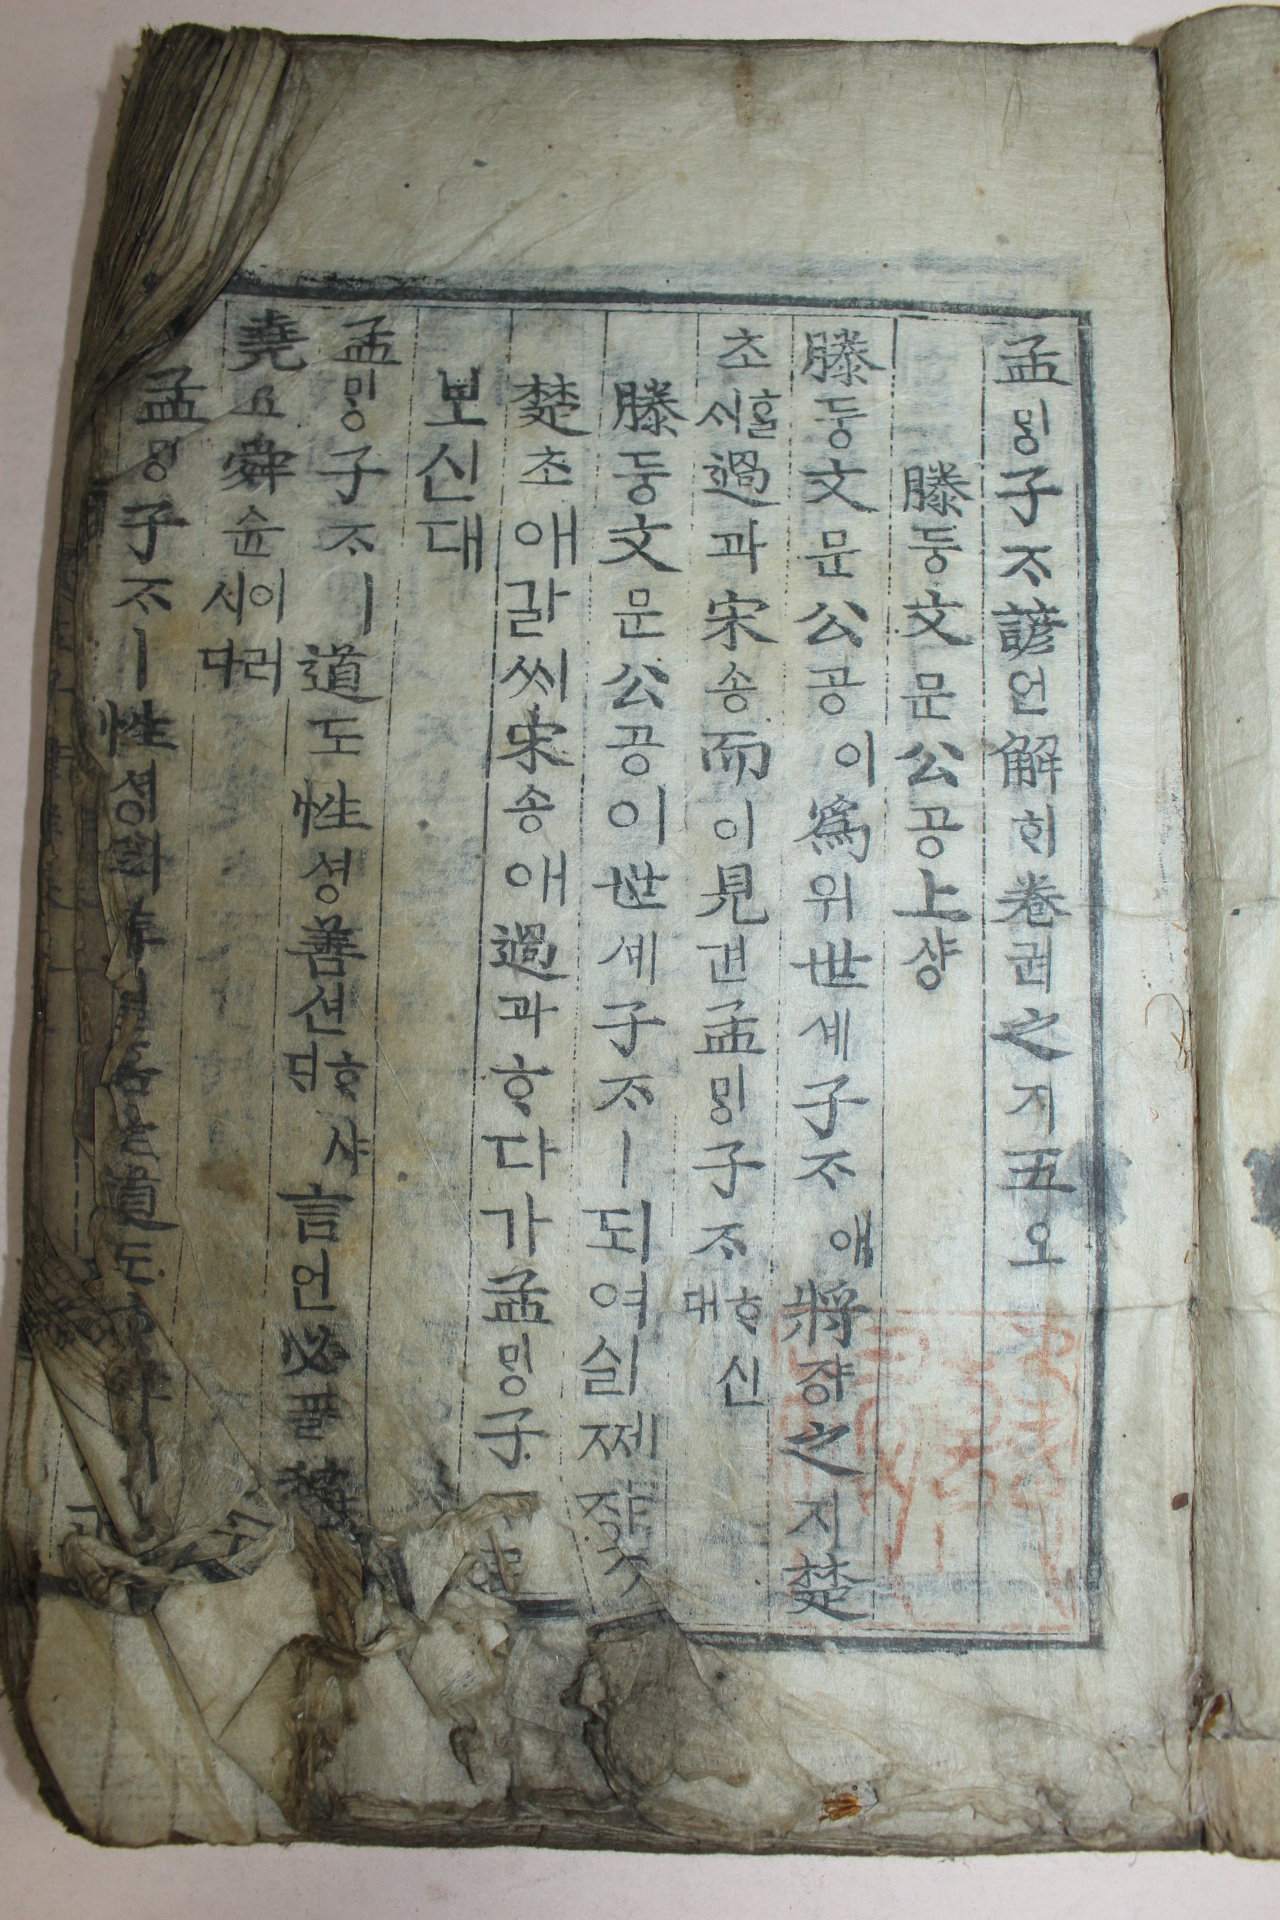 孟ᄆᆡᆼ子ᄌᆞ諺언解ᄒᆡ卷권之지五오
滕등文문公공上샹
滕등文문公공이爲위世셰子ᄌᆞ애將쟝之지楚
초홀시過과宋송而이見견孟ᄆᆡᆼ子ᄌᆞᄒᆞ신대
滕등文문公공이世셰子ᄌᆞㅣ되여실쩨쟝ᄎᆞᆺ
楚초애갈씨宋송애過과ᄒᆞ다가孟ᄆᆡᆼ子
보신대
孟ᄆᆡᆼ子ᄌᆞㅣ道도性셩善션ᄒᆞ샤ᄃᆡ言언必필
堯요舜슌이러시다
孟ᄆᆡᆼ子ᄌᆞㅣ性셩의 道도ᄒᆞ샤